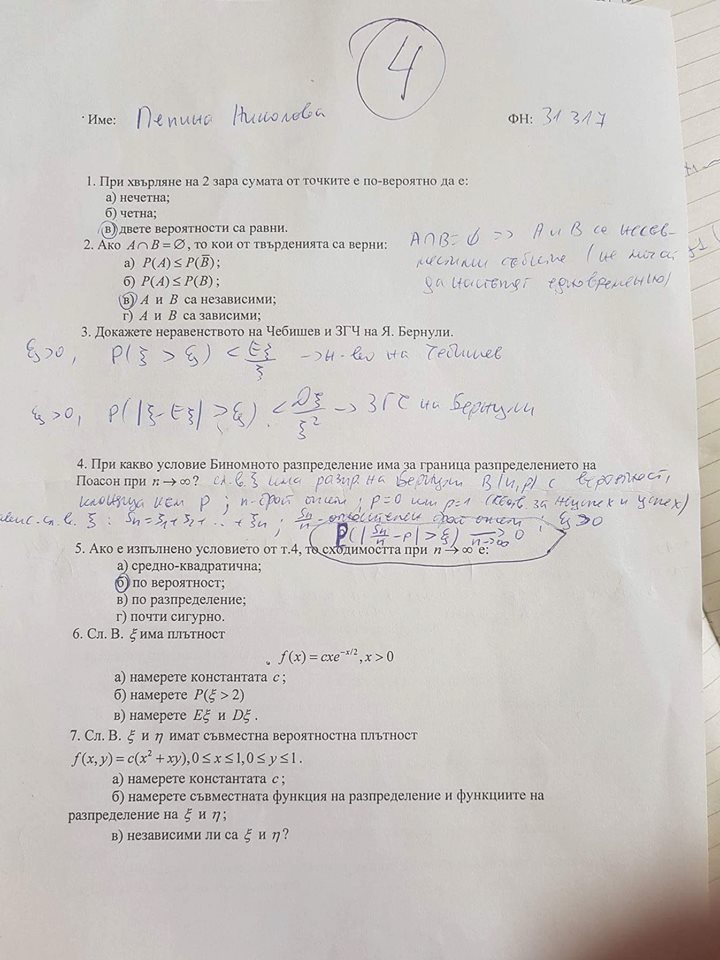 4
Име: Пепина Николова ФН: 31317
1. При хвърляне на 2 зара сумата от точките е по-вероятно да е:
а) нечетна;
б) четна;
в) двете вероятности са равни.
2. Ако A∩B=∅, то кои от твърденията са верни:
A∩B=∅ => A и B са несъв-
местими събития (не могат
да настъпят едновременно)
а) P(A)≤P(B̅);
б) P(A)≤P(B);
в) A и B са независими;
г) A и B са зависими;
3. Докажете неравенството на Чебишев и ЗГЧ на Я. Бернули.
ξ>0, P(ξ > ξ) < Eξ/ξ → н-во на Чебишев
ξ>0, P(|ξ-Eξ| > ξ) < Dξ/ξ² → ЗГЧ на Бернули
4. При какво условие Биномното разпределение има за граница разпределението на
Поасон при n→∞? сл.в. ξ има разпр. на Бернули B(n,p) с вероятност,
клоняща към p; n-брой опити; p=0 или p=1 (съотв за неуспех и успех)
сл. в. ξ: Sn=ξ1+ξ2+...+ξn; Sn/n - брой опити; ξ>0
P(|Sn/n - p| > ξ) →n→∞ 0
5. Ако е изпълнено условието от т.4, то сходимостта при n→∞ е:
а) средно-квадратична;
б) по вероятност;
в) по разпределение;
г) почти сигурно.
6. Сл. В. ξ има плътност
f(x) = cxe^{-x/2}, x > 0
а) намерете константата c;
б) намерете P(ξ > 2)
в) намерете Eξ и Dξ.
7. Сл. В. ξ и η имат съвместна вероятностна плътност
f(x, y) = c(x² + xy), 0 ≤ x ≤ 1, 0 ≤ y ≤ 1.
а) намерете константата c;
б) намерете съвместната функция на разпределение и функциите на
разпределение на ξ и η;
в) независими ли са ξ и η?